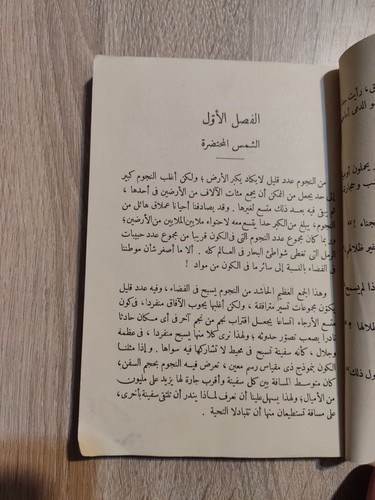 الفصل الأوّل
الشمس المحتضرة
من النجوم عدد قليل لايكاد يكبر الأرض؛ ولكن أغلب النجوم كبير
إلى حد يجعل من الممكن أن يجمع مئات الآلاف من الأرضين في أحدها،
ثم يبقى فيه بعد ذلك متسع لغيرها. وقد يصادفنا أحيانا عملاق هائل من
النجوم، يبلغ من الكبر حدا يتسع معه لاحتواء ملايين الملايين من الأرضين؛
وربما كان مجموع عدد النجوم التى فى الكون قريبا من مجموع عدد حبيبات
الرمل التى تغطى شواطئ البحار فى العالم كله. ألا ما أصغر شأن موطننا
فى الفضاء بالنسبة إلى سائر ما فى الكون من مواد!
وهذا الجمع العظيم الحاشد من النجوم يسبح فى الفضاء، وفيه عدد قليل
يكون مجموعات تسير مترافقة، ولكن أغلبها يجوب الآفاق منفردا، فى كون
متسع الأرجاء اتساعا يجعل اقتراب نجم من نجم آخر فى أى مكان حادثا
نادرا يصعب تصور حدوثه؛ ولهذا نرى كلا منها يسبح منفردا، فى عظمة
وجلال، كأنه سفينة تسبح فى محيط لا تشاركها فيه سواها. وإذا مثلنا
الكون بنموذج ذى مقياس رسم معين، تعرض فيه النجوم بحجم السفن،
كان متوسط المسافة بين كل سفينة وأقرب جارة لها يزيد على مليون
من الأميال؛ ولهذا يسهل علينا أن نعرف لماذا يندر أن تلتقى سفينة بأخرى،
على مسافة تستطيعان منها أن تتبادلا التحية.